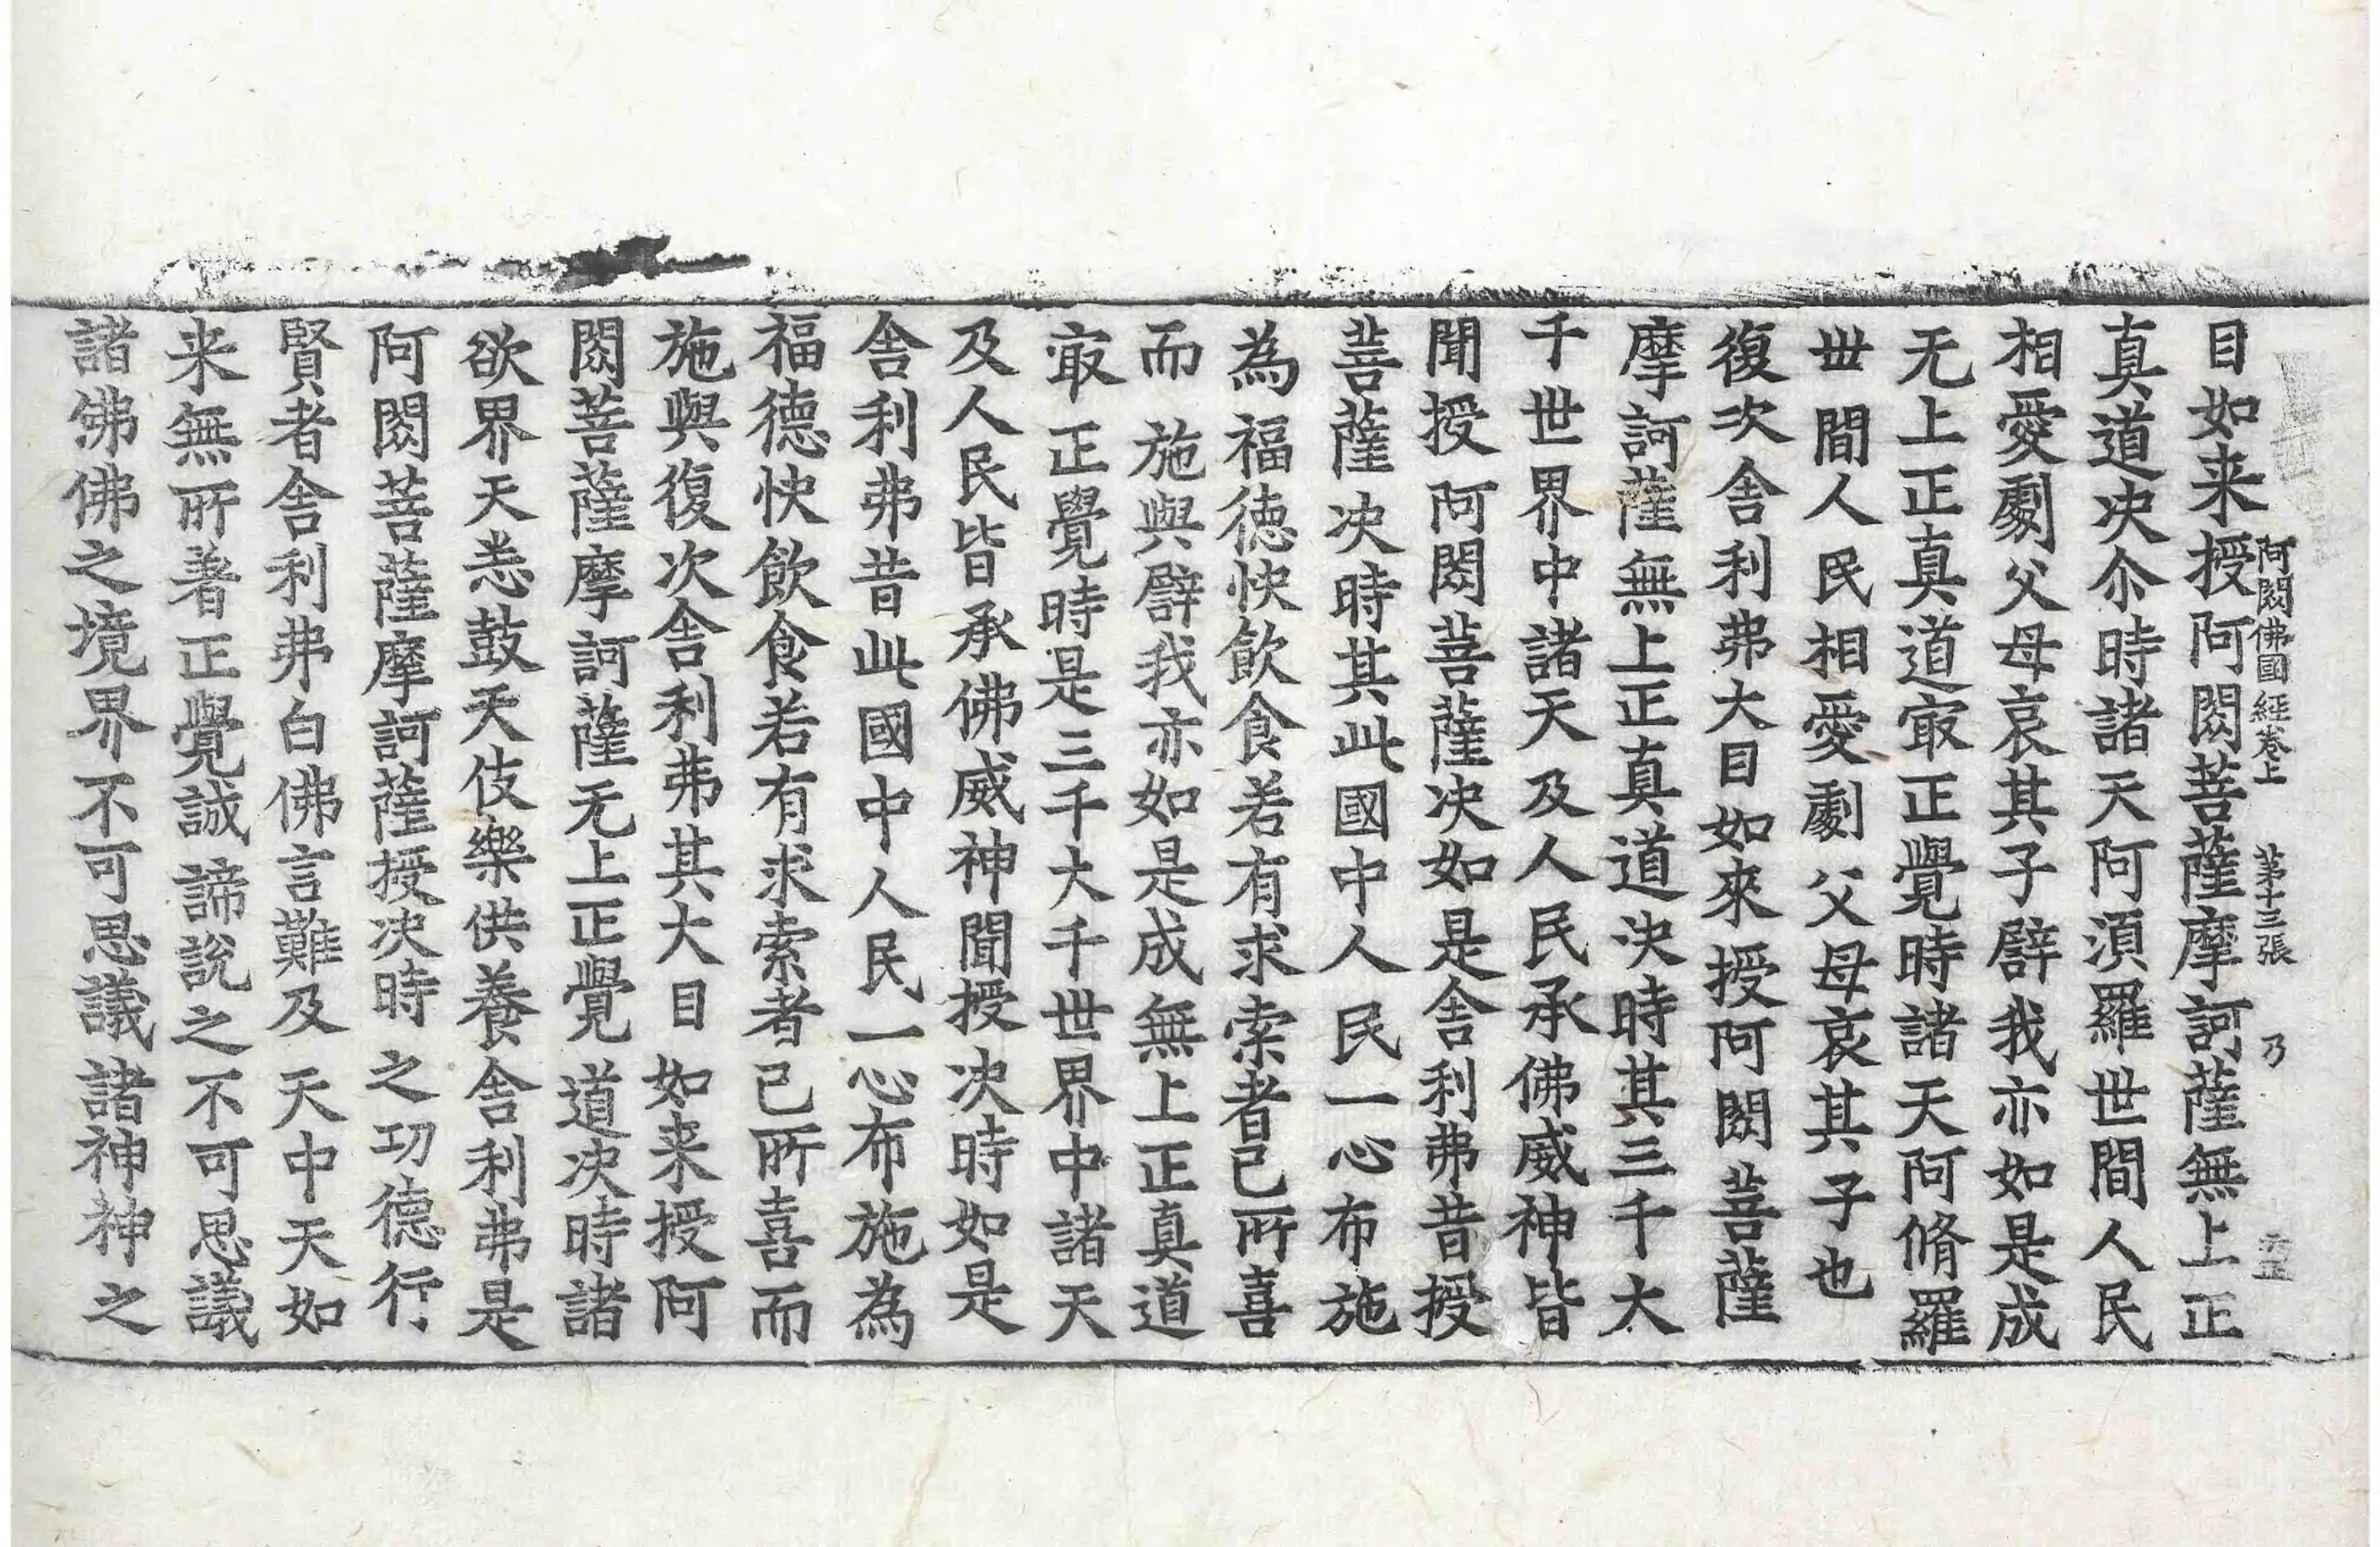 阿閦佛國經卷上 第十三張 乃
目如来授阿閦菩薩摩訶薩無上正
真道决尒時諸天阿湏羅世間人民
相愛劇父母哀其子譬我亦如是成
无上正真道㝡正覺時諸天阿脩羅
丗間人民相愛劇父母哀其子也
復次舎利弗大目如來授阿閦菩薩
摩訶薩無上正真道决時其三千大
千世界中諸天及人民承佛威神皆
聞授阿閦菩薩决如是舎利弗昔授
菩薩决時其此國中人民一心布施
為福德快飲食若有求索者已所喜
而施與譬我亦如是成無上正真道
㝡正覺時是三千大千世界中諸天
及人民皆承佛威神聞授决時如是
舎利弗昔此國中人民一心布施為
福德快飲食若有求索者已所喜而
施與復次舎利弗其大目如来授阿
閦菩薩摩訶薩无上正覺道决時諸
欲界天恚鼓天伎樂供養舎利弗是
阿閦菩薩摩訶薩授决時之功德行
賢者舎利弗白佛言難及天中天如
来無所著正覺誠諦說之不可思議
諸佛佛之境界不可思議諸神神之